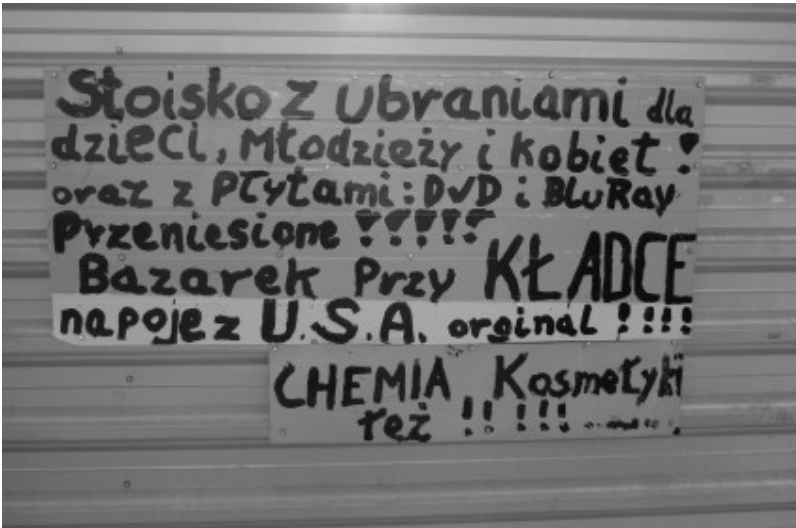 Stoisko z ubraniami dla
dzieci, Młodzieży i kobiet !
oraz z Płytami : DVD i BluRay
Przeniesione !!!!!
Bazarek Przy KŁADCE
napoje z U.S.A. orginal !!!!
CHEMIA Kosmetyki
też !! !!!........